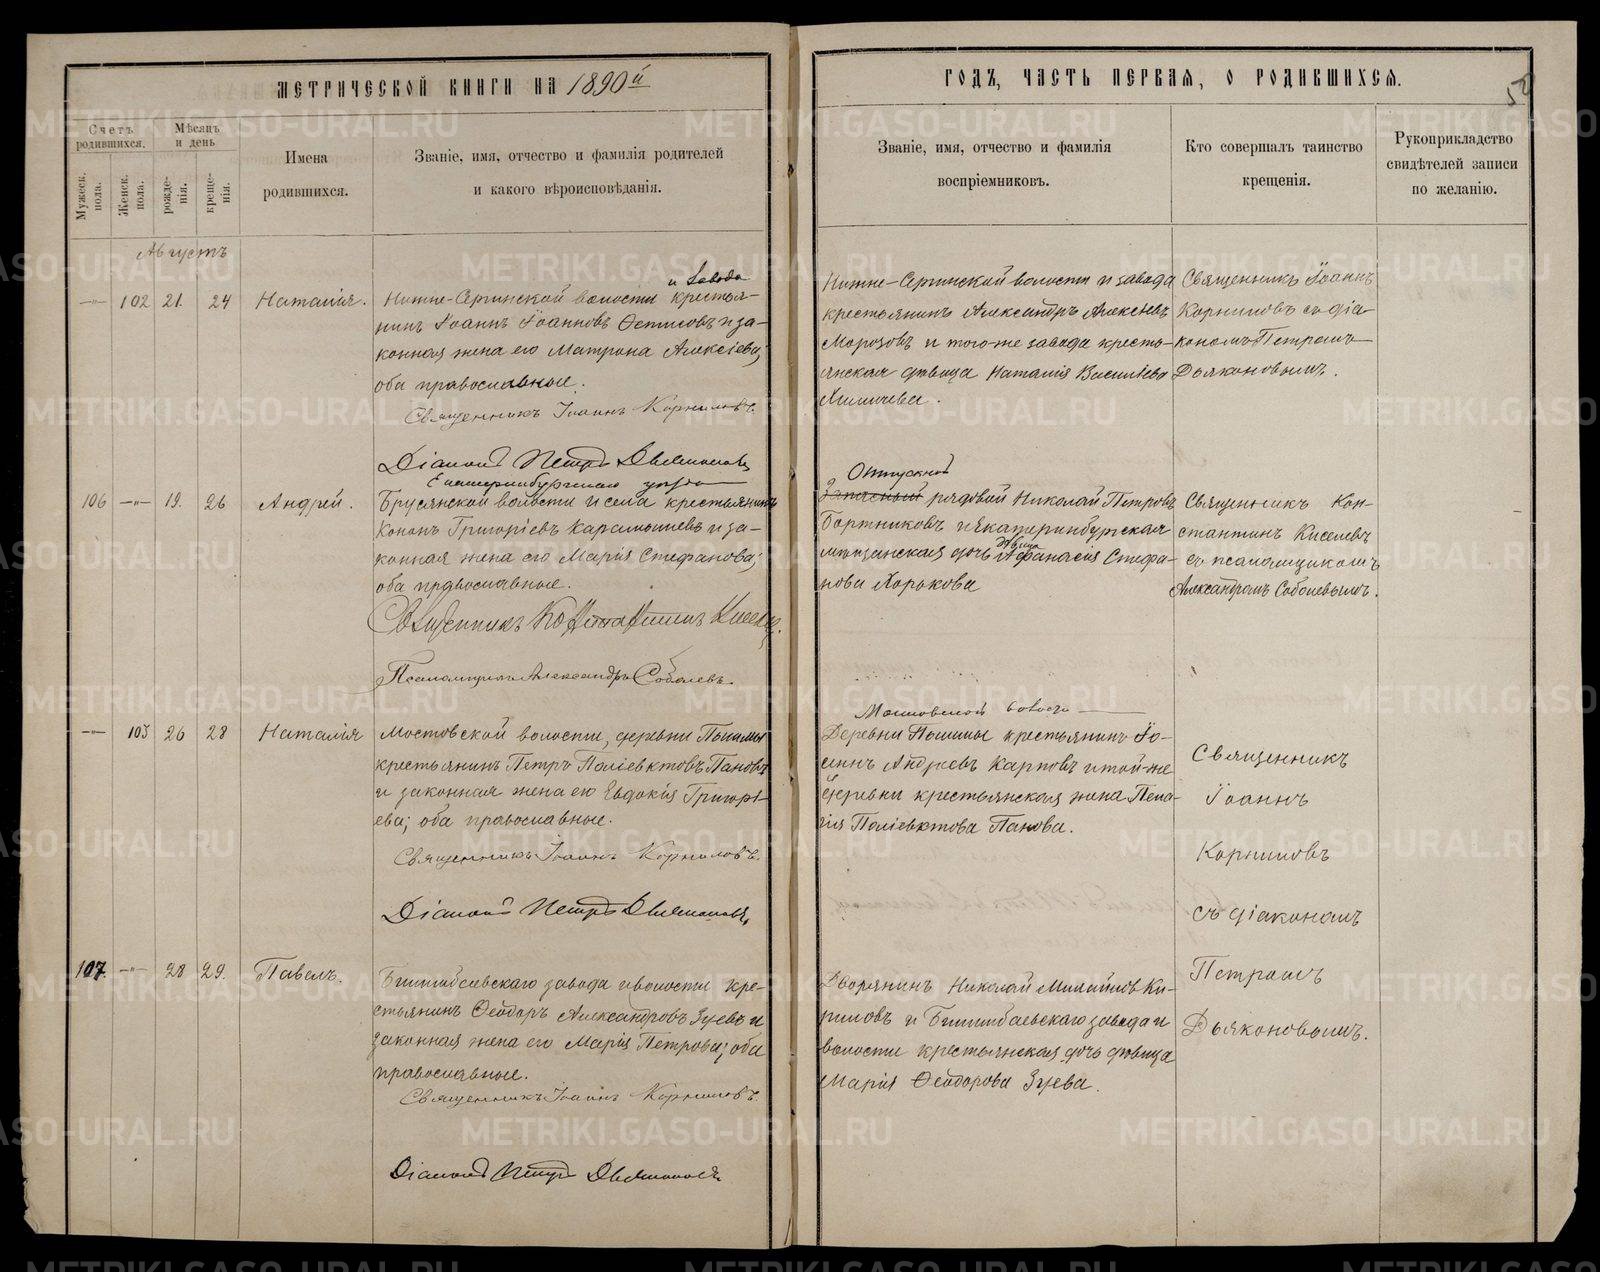 МЕТРИЧЕСКОЙ КНИГИ НА 1890й
ГОДЪ, ЧАСТЬ ПЕРВАЯ, О РОДИВШИХСЯ.
Счетъ родившихся.
Мѣсяцъ и день
Мужеск. пола.
Женск. пола.
рожде-нія.
креще-нія.
Имена
родившихся.
Званіе, имя, отчество и фамилія родителей
и какого вѣроисповѣданія.
Званіе, имя, отчество и фамилія
воспріемниковъ.
Кто совершалъ таинство
крещенія.
Рукоприкладство
свидѣтелей записи
по желанію.
Августъ
102 21. 24 Наталія.
и завода
Нижне-Сергинской волости крестья-
нинъ Іоаннъ Іоанновъ и за-
конная жена его Матрона Алексіева;
оба православные.
Священникъ Іоаннъ Корниловъ.
Діаконъ Петръ Дьяконовъ
Нижне-Сергинской волости и завода
крестьянинъ Александръ Алексіевъ
Морозовъ и того-же завода кресть-
янская дѣвица Наталія Василіева
Священникъ Іоаннъ
Корниловъ съ діа-
кономъ Петромъ
Дьяконовымъ.
106 19. 26 Андрей.
Екатеринбургскаго уѣзда
Бруснянской волости и села крестьянинъ
Кононъ Григоріевъ Карамышевъ и за-
конная жена его Марія Стефанова;
оба православные.
Священникъ Константинъ Киселевъ.
Псаломщикъ Александръ Соболевъ.
Отпускной
Запасный рядовой Николай Петровъ
Бортниковъ и Екатеринбургская
дѣвица
мѣщанская дочь Афанасія Стефа-
нова Хорькова
Священникъ Кон-
стантинъ Киселевъ
съ псаломщикомъ
Александромъ Соболевымъ.
103 26 28 Наталія
Мостовской волости, деревни
крестьянинъ Петръ Поліевктовъ Пановъ
и законная жена его Евдокія Григорі-
ева; оба православные.
Священникъ Іоаннъ Корниловъ.
Діаконъ Петръ Дьяконовъ,
Мостовской волости
Деревни крестьянинъ Іо-
аннъ Андреевъ Карповъ и той-же
деревни крестьянская жена Пела-
гія Поліевктова Панова.
Священникъ
Іоаннъ
Корниловъ
съ діакономъ
Петромъ
Дьяконовымъ.
107 28 29. Павелъ.
Билимбаевскаго завода и волости кре-
стьянинъ Ѳеодоръ Александровъ Зуевъ и
законная жена его Марія Петрова; оба
православные.
Священникъ Іоаннъ Корниловъ.
Діаконъ Петръ Дьяконовъ
Дворянинъ Николай Михайловъ Ки-
риловъ и Билимбаевскаго завода и
волости крестьянская дочь дѣвица
Марія Ѳеодорова Зуева.
METRIKI.GASO-URAL.RU